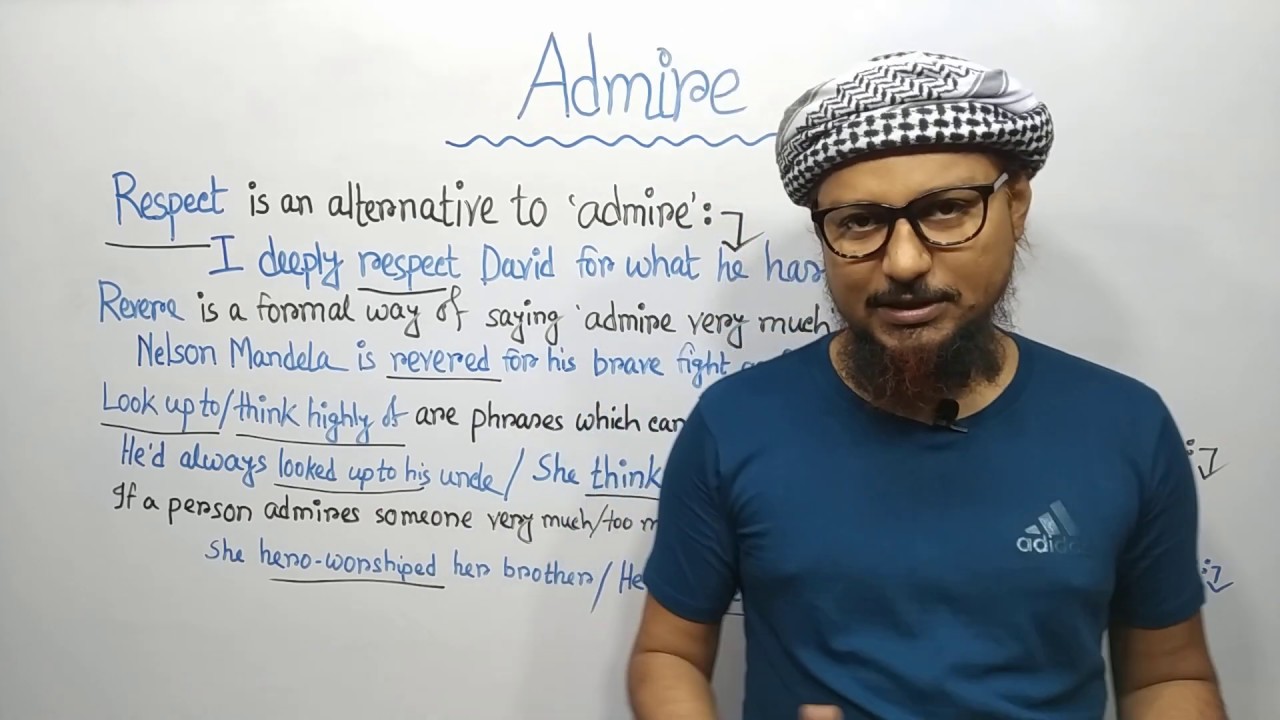 Admire
Respect is an alternative to 'admire':
I deeply respect David for what he has
Revere is a formal way of saying 'admire very much
Nelson Mandela is revered for his brave fight
Look up to/think highly of are phrases which can
He'd always looked up to his uncle/ She think
If a person admires someone very much/too
She hero-worshiped her brother/ He
adidas